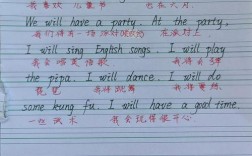 我喜欢 儿童节 也在六月.
We will have a party. At the party,
我们将有一场派对 在派对上
I will sing English songs. I will play
我会唱英语歌 我将会弹
the pipa. I will dance. I will do
琵琶 我将跳舞 我将要练
some kung fu. I will have a good time.
一些武术 我会玩得很开心